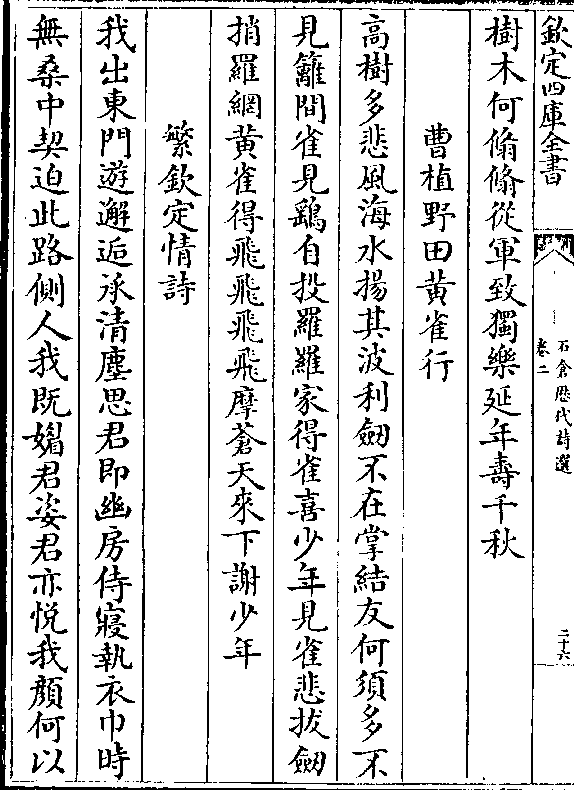 欽定四庫全書
石倉歴代詩選
卷二
二十六
樹木何翛翛從軍致獨樂延年壽千秋
曹植野田黄雀行
高樹多悲風海水揚其波利劒不在掌結友何須多不
見籬間雀見鷂自投羅羅家得雀喜少年見雀悲拔劒
捎羅網黄雀得飛飛飛飛摩蒼天來下謝少年
繁欽定情詩
我出東門遊邂逅承清塵思君即幽房侍寢執衣巾時
無桑中契迫此路側人我既媚君姿君亦悦我顔何以